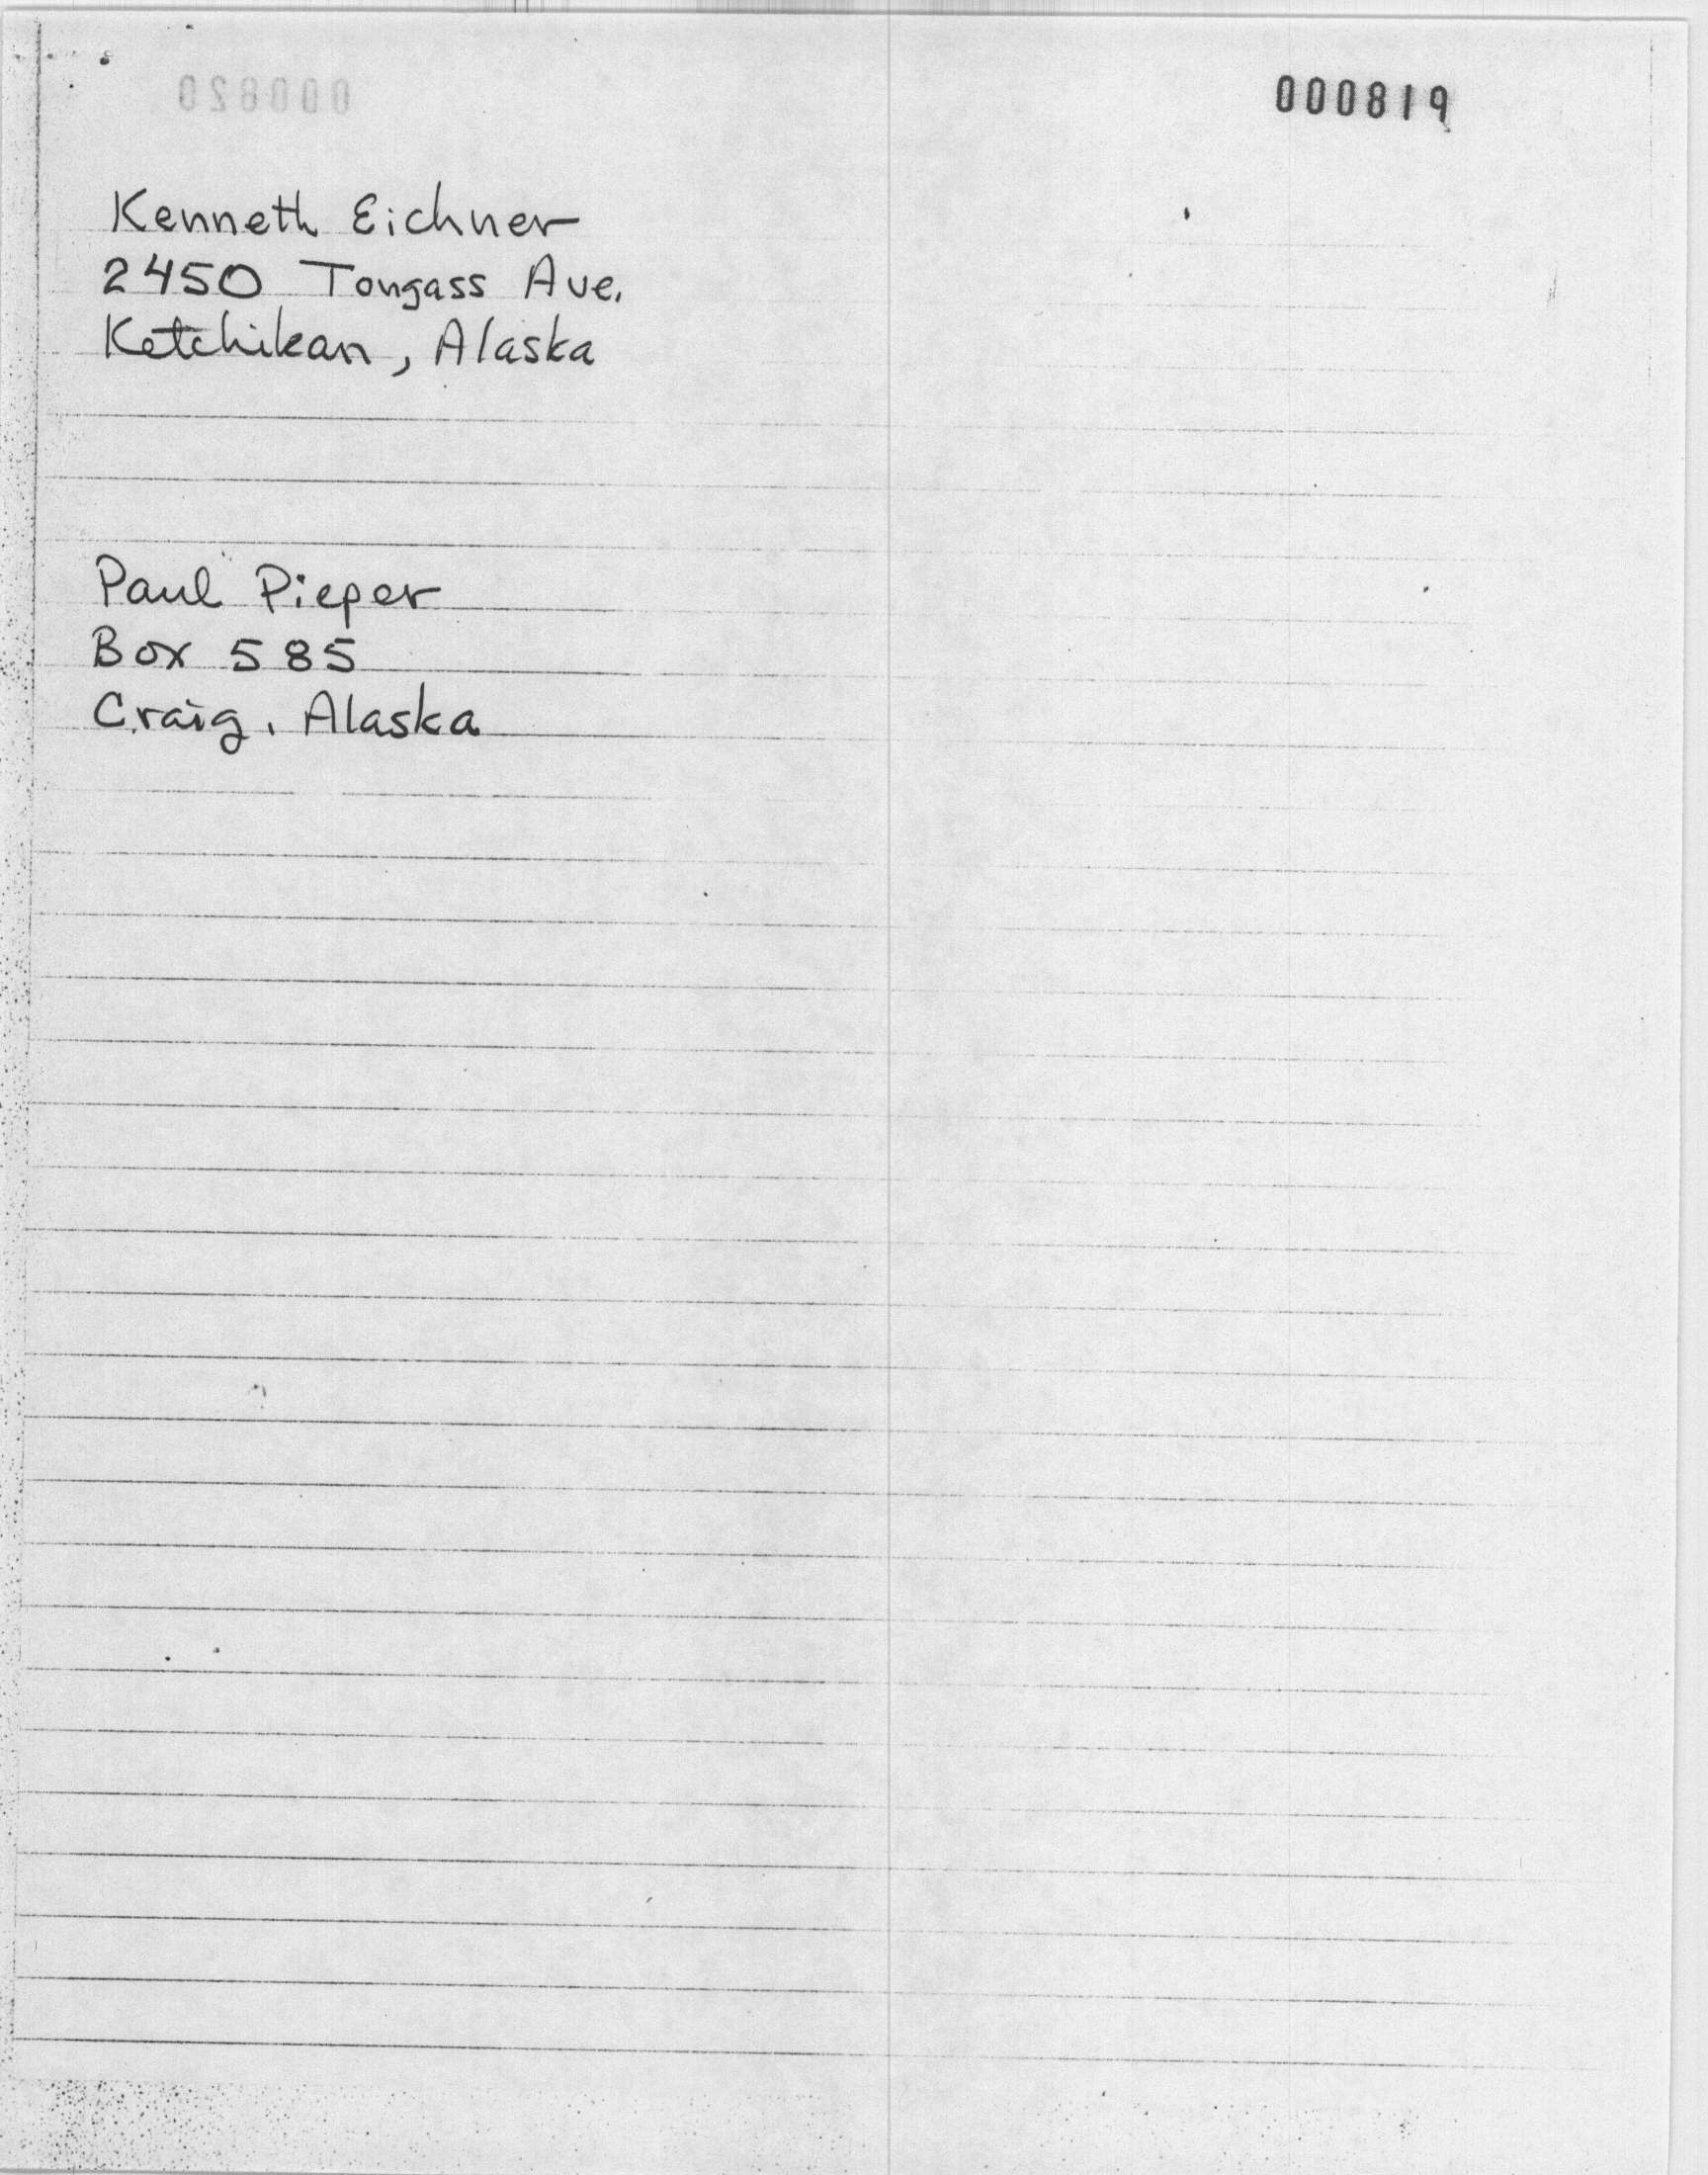 000819
Kenneth Eichner
2450 Tongass Ave.
Ketchikan, Alaska
Paul Pieper
Box 585
Craig, Alaska